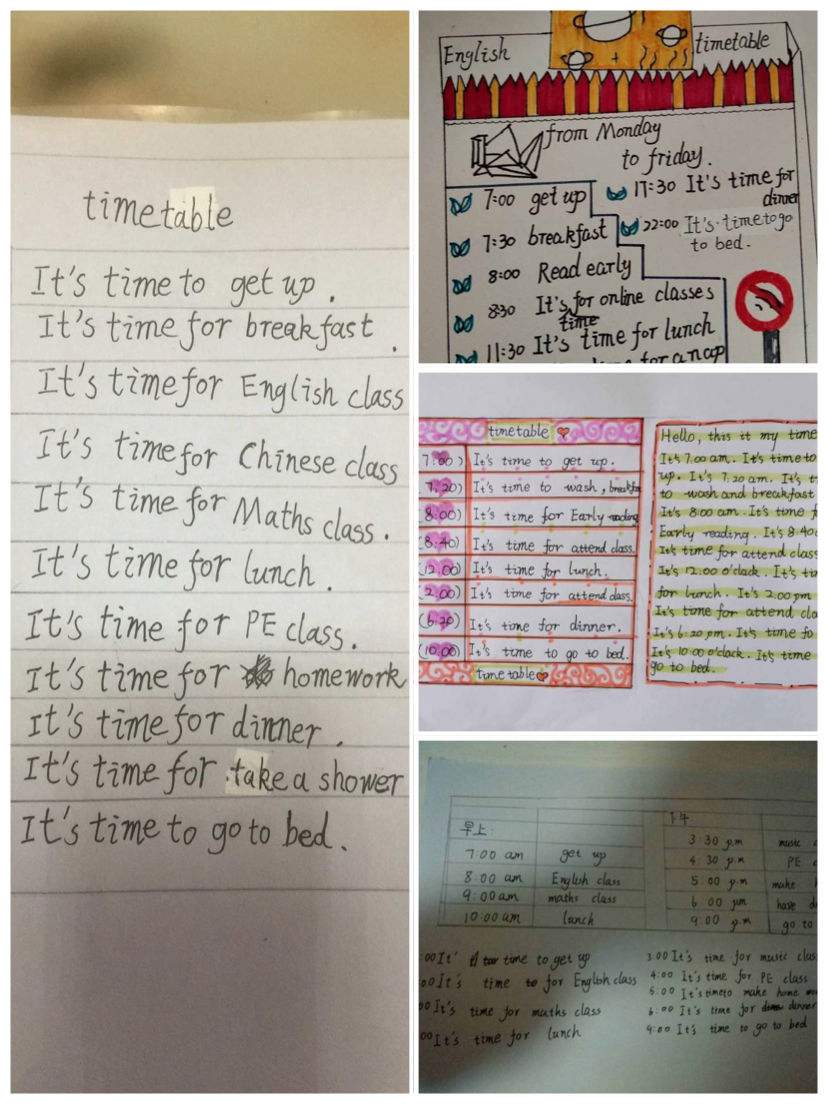 timetable
It's time to get up.
It's time for breakfast.
It's time for English class
It's time for Chinese class
It's time for Maths class.
It's time for lunch.
It's time for PE class.
It's time for homework
It's time for dinner.
It's time for take a shower
It's time to go to bed.
English timetable
from Monday
to friday.
7:00 get up
7:30 breakfast
8:00 Read early
8:30 It's time for online classes
11:30 It's time for lunch
for a nap
17:30 It's time for
dinner
22:00 It's time to go
to bed.
timetable
7:00) It's time to get up.
7:20) It's time to wash, breakfa
8:00) It's time for Early reading
8:40) It's time for attend class.
12:00) It's time for lunch.
2:00) It's time for attend class.
(6:20) It's time for dinner.
(10:00) It's time to go to bed.
timetable
Hello, this it my time
It's 7.00 am. It's time to
up. It's 7.20 am. It's t
to wash and breakfast
It's 8:00 am. It's time f
Early reading. It's 8:40
It's time for attend class
It's 12.00 o'clock. It's ti
for lunch. It's 2.00 pm
It's time for attend cla
It's 6:20 pm. It's time fo
It's 10 00 o'clock. It's time
go to bed.
早上:
7:00 am get up
8:00 am English class
9:00 am maths class
10:00 am lunch
下午
3:30 p.m music
4:30 p.m PE
5:00 p.m make
6:00 pm have d
9:00 p.m go to
:00 It' time to get up
00 It's time for English class
00 It's time for maths class
00 It's time for lunch
3:00 It's time for music clas
4:00 It's time for PE class
5:00 It's time to make home
6:00 It's time for dinner
9:00 It's time to go to bed